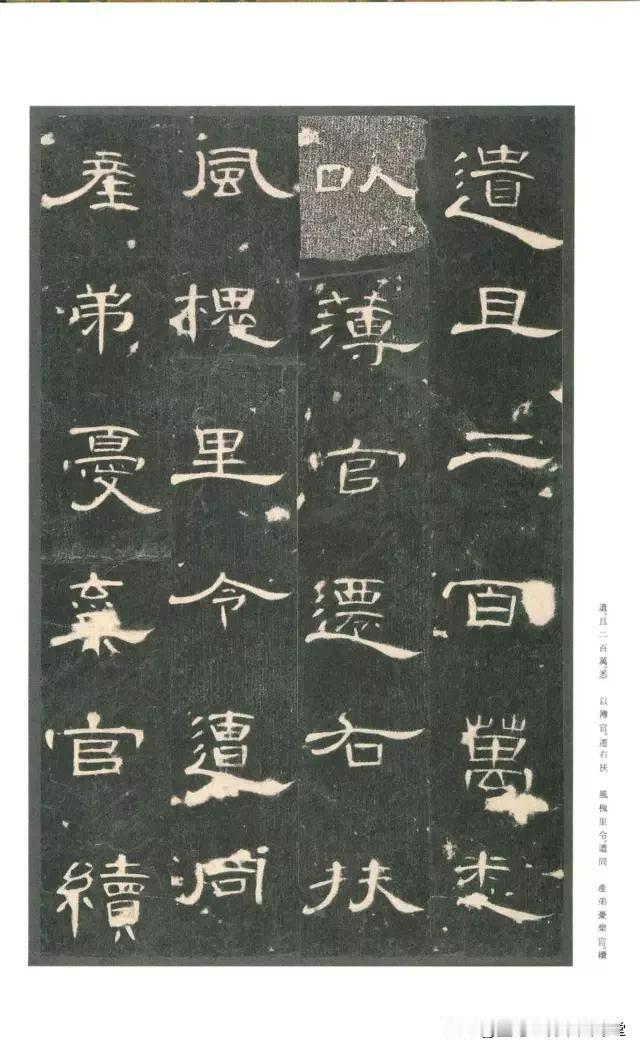 遺且二百萬悉
以薄官遷右扶
風槐里令遭同
產弟憂棄官續
遺。且二百萬。悉　以薄官。遷右扶　風槐里令。遭同　產弟憂棄官。續